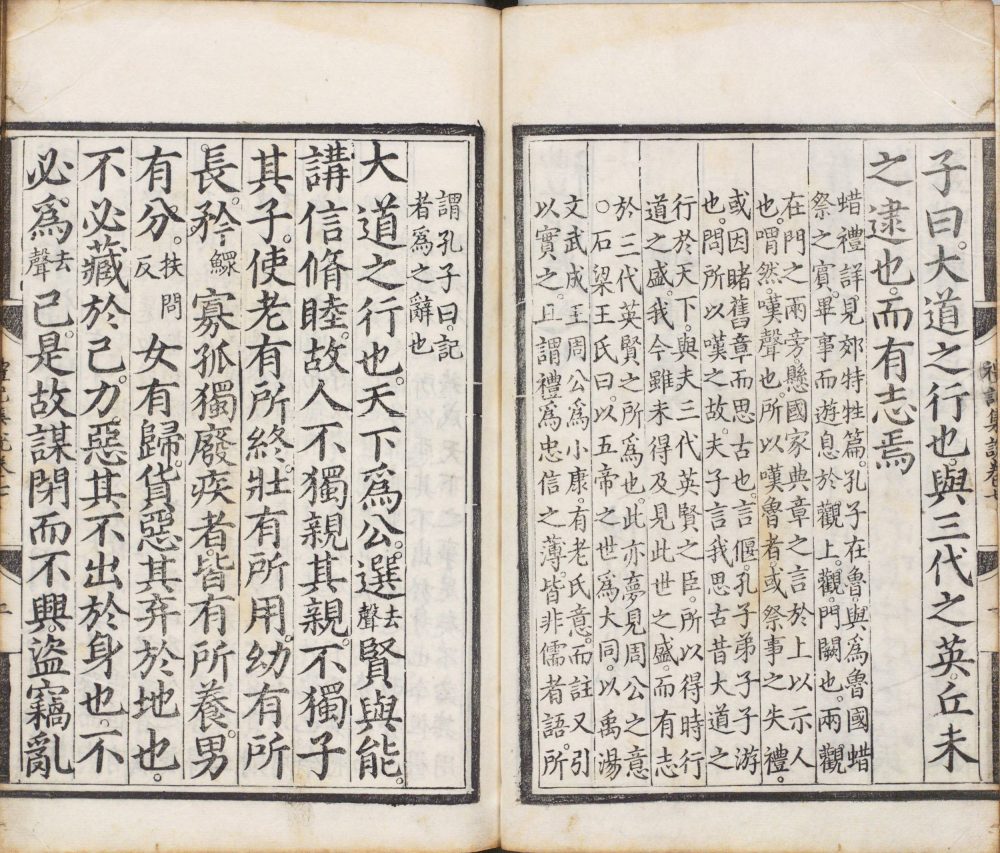 子曰。大道之行也。與三代之英。丘未
之逮也。而有志焉
蜡禮詳見郊特牲篇。孔子在魯。與爲魯國蜡
祭之賓。畢事而遊息於觀上。觀。門闕也。兩觀
在門之兩旁。懸國家典章之言於上以示人
也。喟然。嘆聲也。所以嘆魯者。或祭事之失禮。
或因睹舊章而思古也。言偃。孔子弟子子游
也。問所以嘆之故。夫子言我思古昔大道之
行於天下。與夫三代英賢之臣。所以得時行
道之盛。我今雖未得及見此世之盛。而有志
於三代英賢之所爲也。此亦夢見周公之意
〇石梁王氏曰。以五帝之世爲大同。以禹湯
文武成王周公爲小康。有老氏意。而註又引
以實之。且謂禮爲忠信之薄。皆非儒者語。所
謂孔子曰。記
者爲之辭也
大道之行也。天下爲公。選去聲賢與能。
講信脩睦。故人不獨親其親。不獨子
其子。使老有所終。壯有所用。幼有所
長。矜鰥寡孤獨廢疾者。皆有所養。男
有分。扶問反女有歸。貨惡其弃於地也。
不必藏於己。力。惡其不出於身也。不
必爲去聲己。是故謀閉而不興。盜竊亂